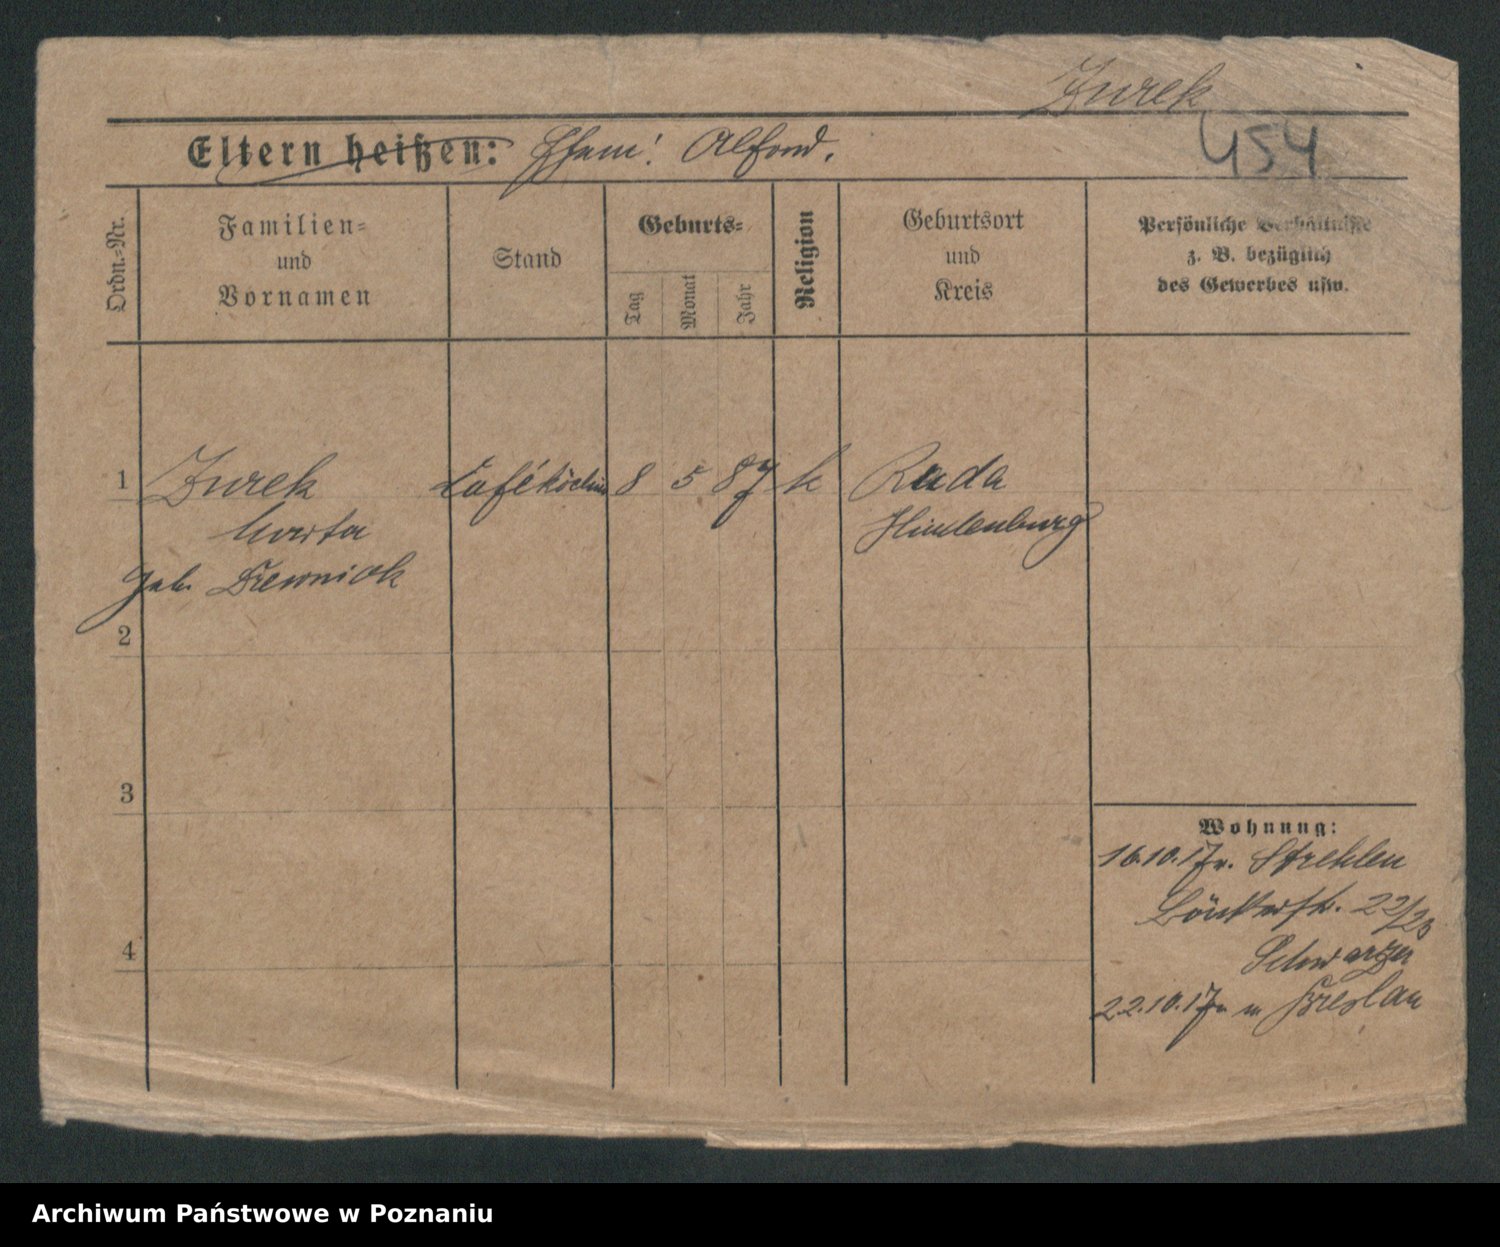 Zurek
454
Eltern heißen: Ehem: Alfond.
Ordn.=Nr.
Familien=
und
Vornamen
Stand
Geburts=
Tag
Monat
Jahr
Religion
Geburtsort
und
Kreis
Persönliche Verhältnisse
z. B. bezüglich
des Gewerbes usw.
1 Zurek Caféköchin 8 5 87 k Ruda
Marta Hindenburg
geb. Drewniok
2
3
4
Wohnung:
16.10.17 v. Strehlen
22/23
Schwarzer
22.10.17 n Breslau
Archiwum Państwowe w Poznaniu